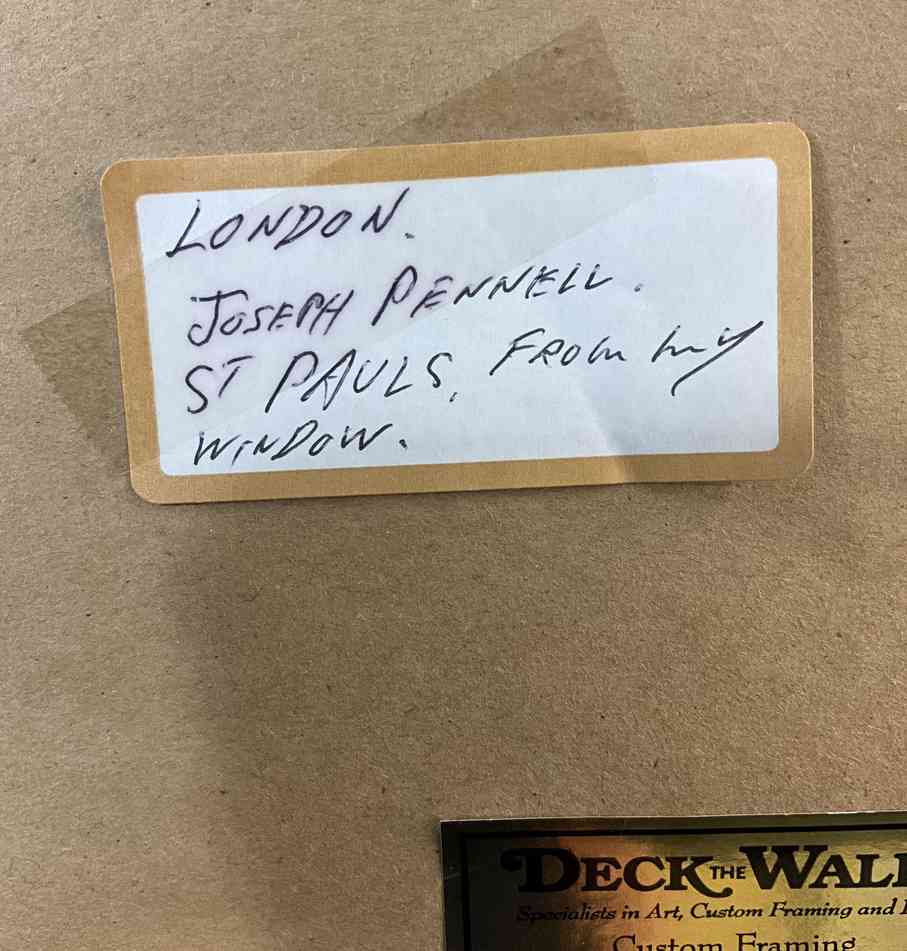 LONDON.
JOSEPH PENNELL.
ST PAULS, FROM MY
WINDOW.
DECK THE WAL
Specialists in Art, Custom Framing and
Custom Framing